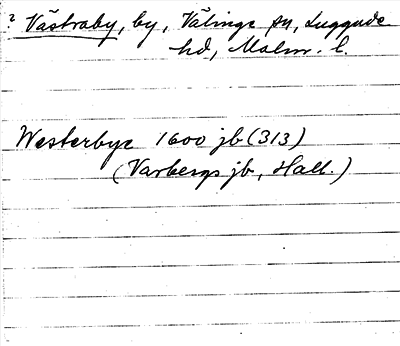 ? Västraby, by, Välinge sn, Luggude
hd, Malm. l.
Westerbye 1600 jb (313)
(Varbergs jb, Hall.)